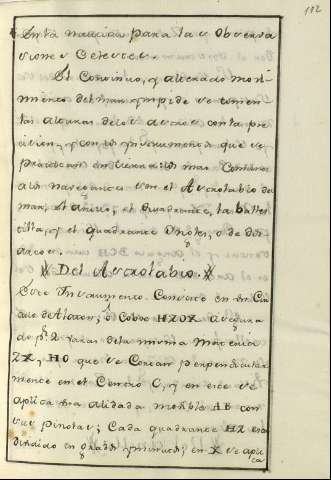 132
para las Observa
ciones Celestes.
El Continuo, y alterado movi-
miento del mar, impide se
algunas de los Astros con la pre
cision, y con los instrumentos que se
practican en tierra: los mas Comunes
a los navegantes son el Astrolabio de
mar, el anillo, y el quadrante, la balles
tilla, y el quadrante Ingles, o de dos
arcos.
Del Astrolabio.
Este Instrumento Consiste en un Cir
culo de Laton, ó Cobre HZOX asegura
do pr. 2 varas de la misma materia
ZX, y HO que se Cortan perpendicular
mente en el Centro C, y en este se
aplica una alidada movible AB con
sus pinolas; Cada quadrante HZ esta
dividido en grados y minutos, en X se aplica